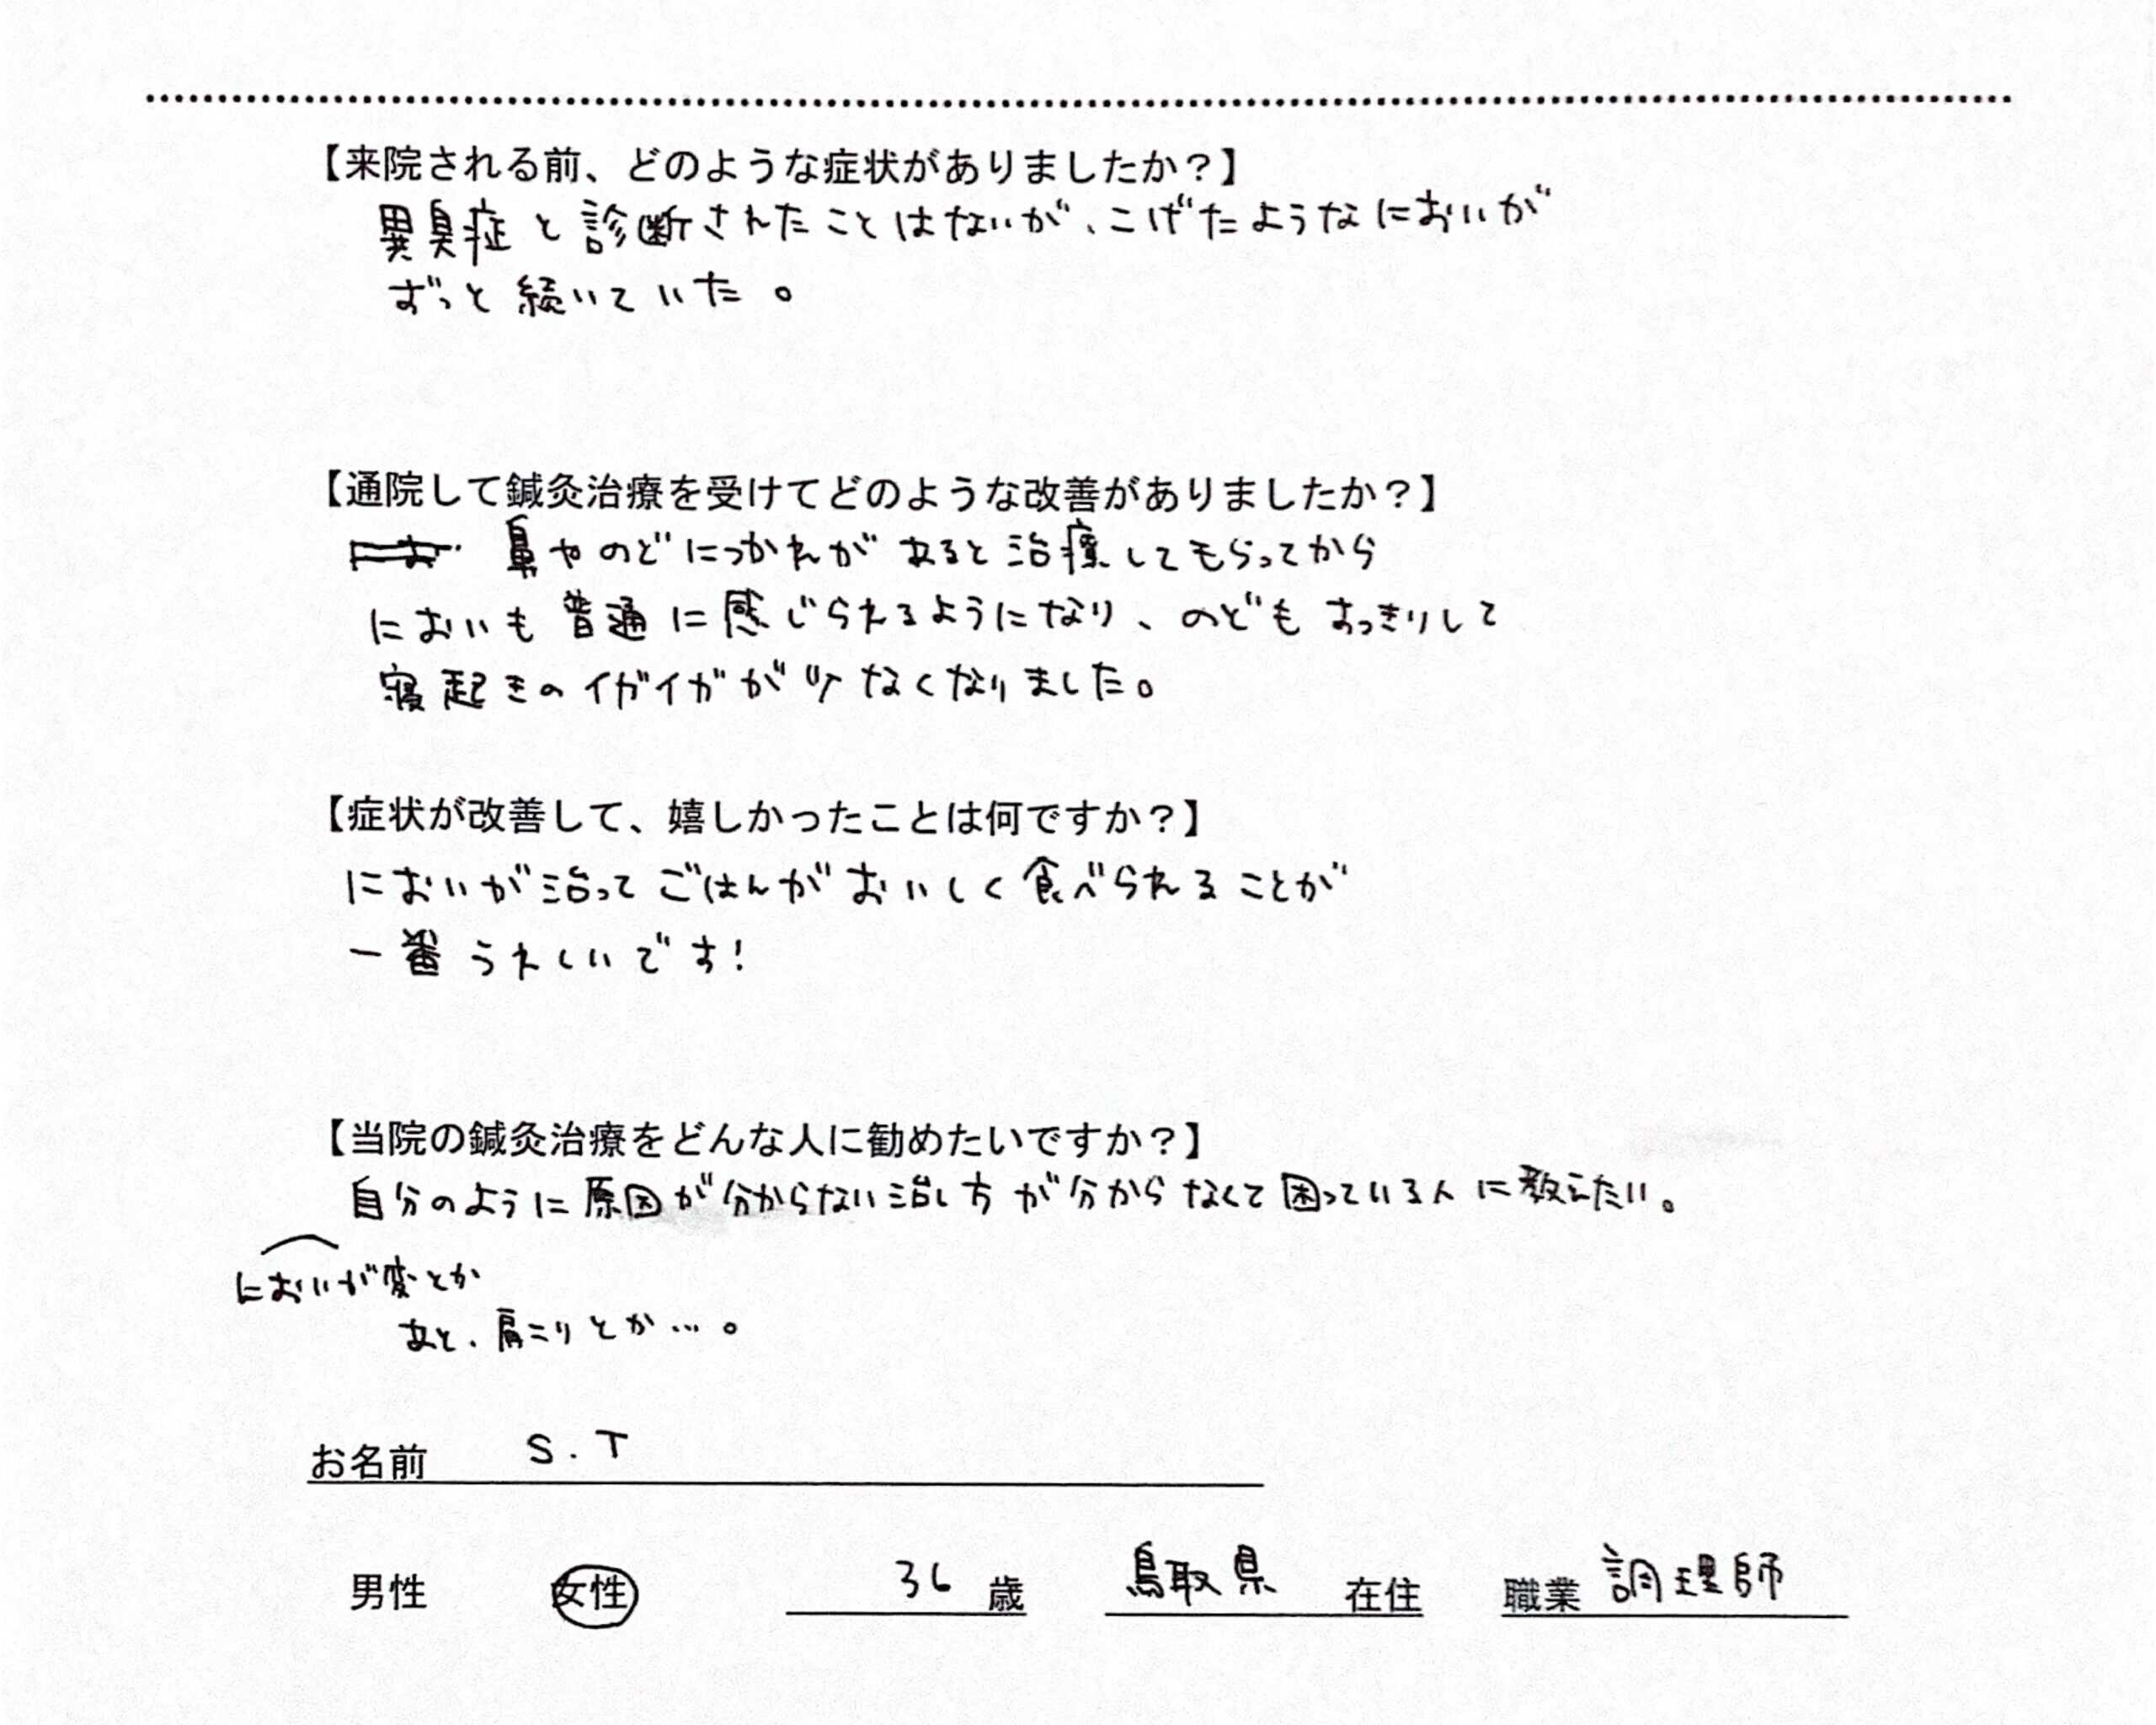 【来院される前、どのような症状がありましたか？】
異臭症と診断されたことはないが、こげたようなにおいが
ずっと続いていた。
【通院して鍼灸治療を受けてどのような改善がありましたか？】
鼻やのどにつかれがあると治療してもらってから
においも普通に感じられるようになり、のどもすっきりして
寝起きのイガイガが少なくなりました。
【症状が改善して、嬉しかったことは何ですか？】
においが治ってごはんがおいしく食べられることが
一番うれしいです！
【当院の鍼灸治療をどんな人に勧めたいですか？】
自分のように原因が分からない治し方が分からなくて困っている人に教えたい。
においが変とか
あと、肩こりとか…。
お名前 S.T
男性 女性 36 歳 鳥取県 在住 職業 調理師